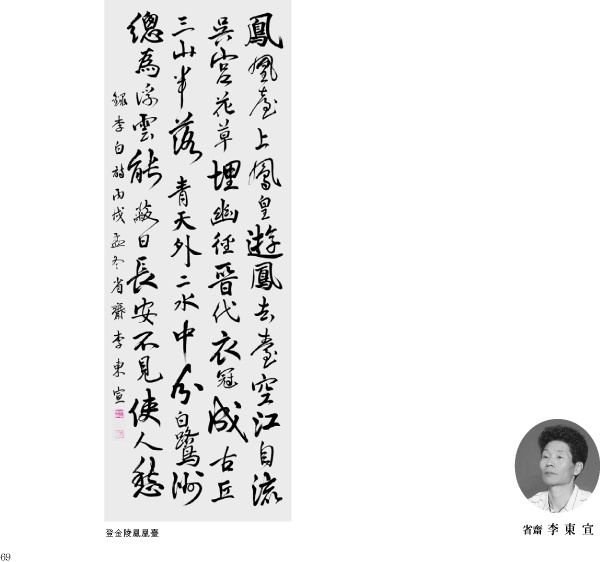 鳳凰臺上鳳皇遊鳳去臺空江自流
吳宮花草埋幽徑晉代衣冠成古丘
三山半落青天外二水中分白鷺洲
總為浮雲能蔽日長安不見使人愁
錄李白詩丙戌孟冬省齋李東宣
登金陵鳳凰臺
省齋 李東宣
69